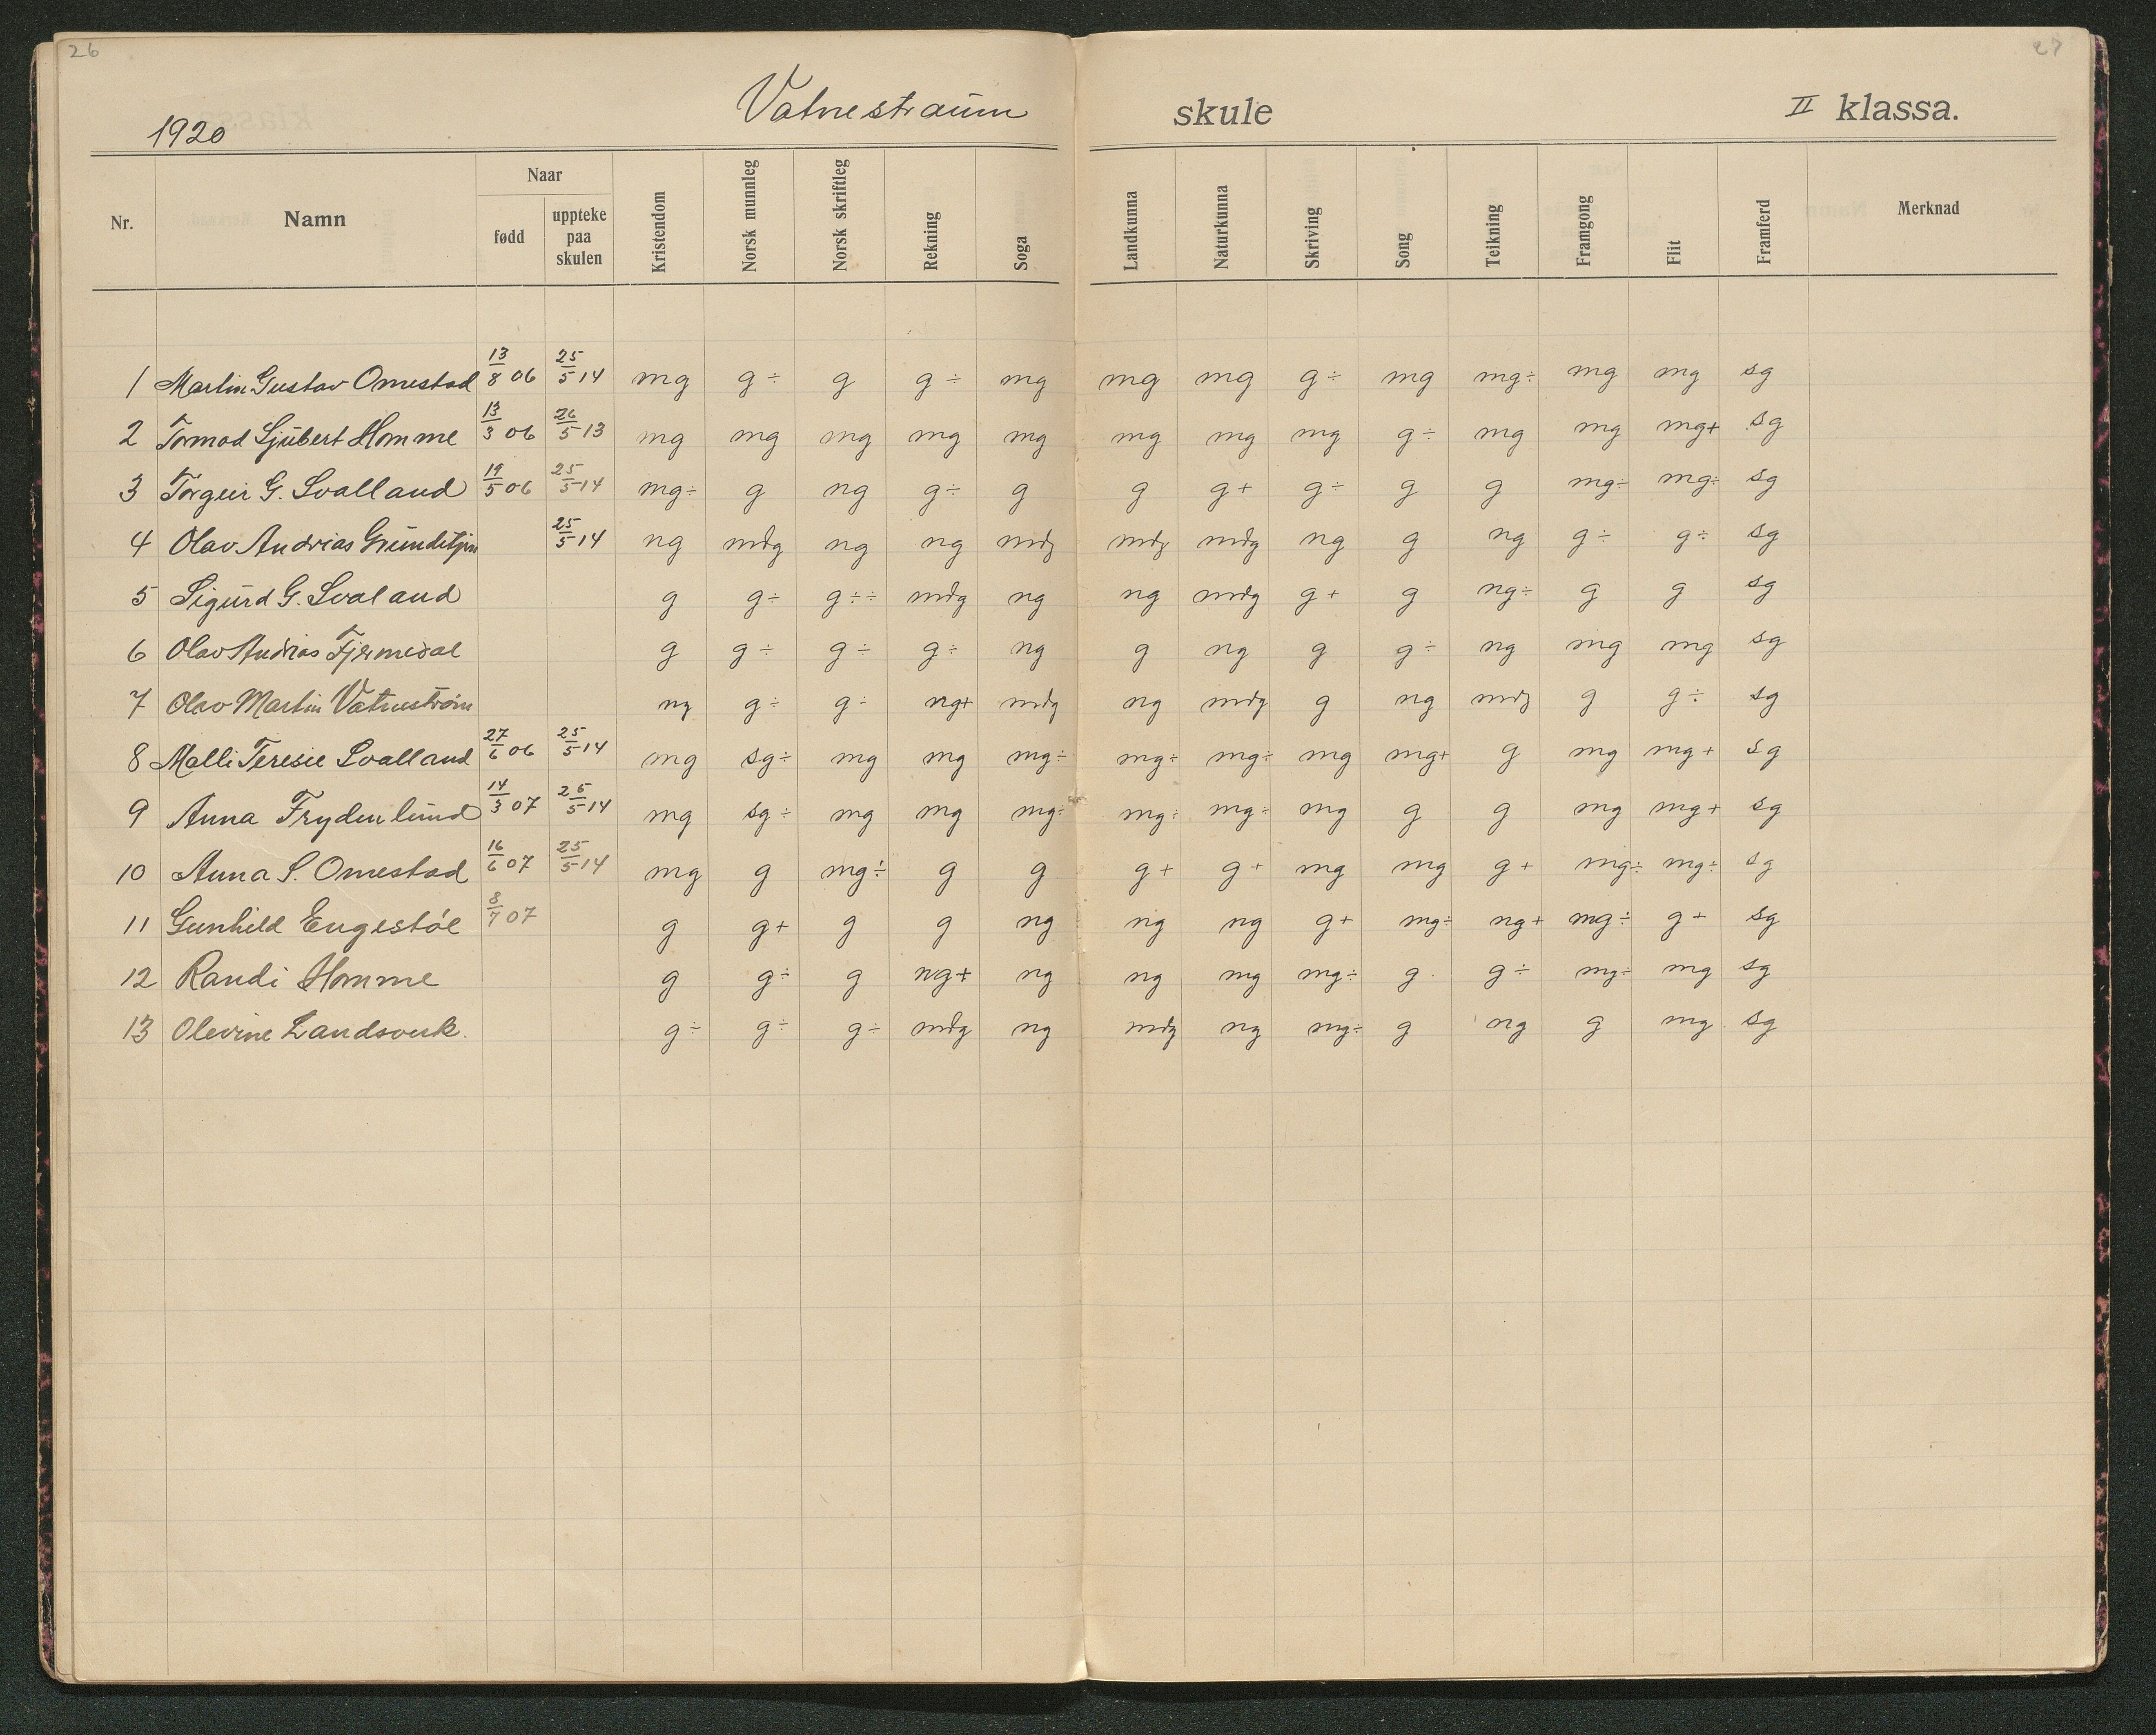 26
27
1920 Vatnestraum skule II klassa.
Nr. Namn Naar fødd uppteke paa skulen Kristendom Norsk munnleg Norsk skriftleg Rekning Soga Landkunna Naturkunna Skriving Song Teikning Framgong Flit Framferd Merknad
1 Martin Gustav Omestad 13/8 06 25/5 14 mg g÷ g g÷ mg mg mg g÷ mg mg÷ mg mg sg
2 Tormod Ljubert Homme 13/3 06 26/5 13 mg mg mg mg mg mg mg mg g÷ mg mg mg+ sg
3 Torgeir G. Svalland 19/5 06 25/5 14 mg÷ g ng g÷ g g g+ g÷ g g mg÷ mg÷ sg
4 Olav Andrias 25/5 14 ng mdg ng ng mdg mdg mdg ng g ng g÷ g÷ sg
5 Sigurd G. Svaland g g÷ g÷÷ mdg ng ng mdg g+ g ng÷ g g sg
6 Olav Andrias Fjermedal g g÷ g÷ g÷ ng g ng g g÷ ng mg mg sg
7 Olav Martin Vatnestrøm ng g÷ g÷ ng+ mdg ng mdg g ng mdg g g÷ sg
8 Malli Teresie Svalland 27/6 06 25/5 14 mg sg÷ mg mg mg÷ mg÷ mg÷ mg mg+ g mg mg+ sg
9 Anna Frydenlund 14/3 07 25/5 14 mg sg÷ mg mg mg÷ mg÷ mg÷ mg g g mg mg+ sg
10 Anna S. Omestad 16/6 07 25/5 14 mg g mg÷ g g g+ g+ mg mg g+ mg÷ mg÷ sg
11 Gunhild Engestøl 8/7 07 g g+ g g ng ng ng g+ mg÷ ng+ mg÷ g+ sg
12 Randi Homme g g÷ g ng+ ng ng mg mg÷ g. g÷ mg÷ mg sg
13 Olevine Landsverk. g÷ g÷ g÷ mdg ng mdg ng mg÷ g ng g mg sg